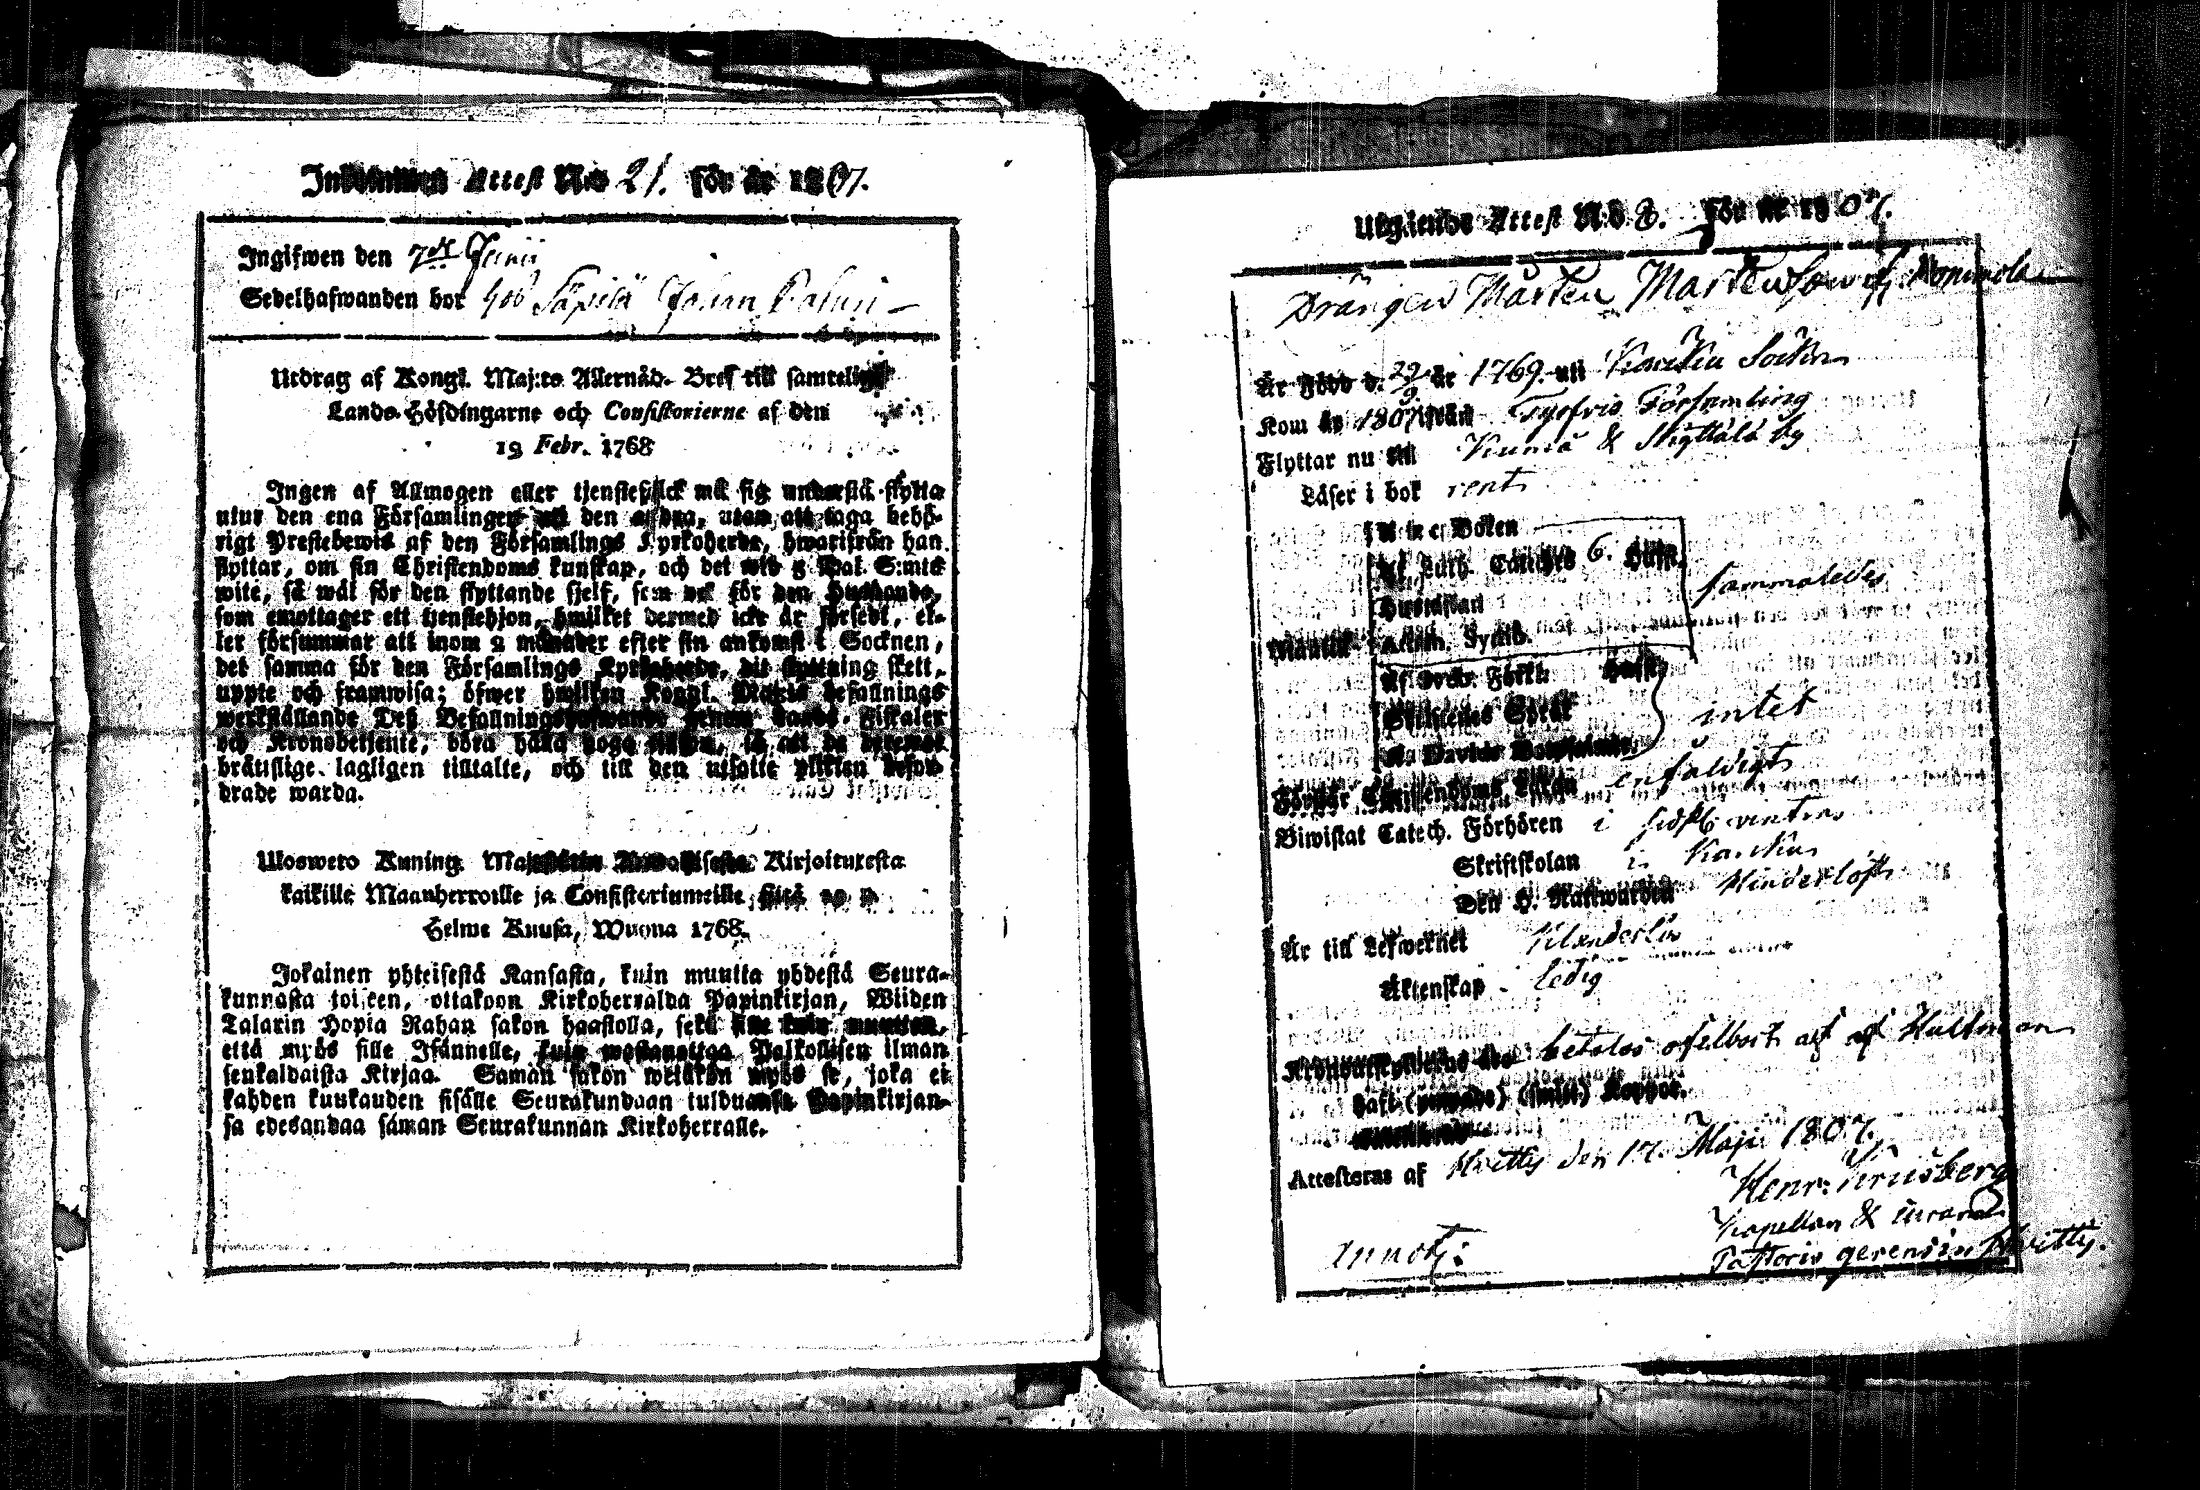 Inkommen Attest N:o 21. för år 1807.
Ingifwen den 7de Junii
Sedelhafwanden bor hos Säpilä Johan
Utdrag af Kongl. Maj:ts Allernåd. Bref till samtelige
Lands-Höfdingarne och Consistorierne af den
19 Febr. 1768
Ingen af Allmogen eller tjenstefålck må sig understå flytta
utur den ena Församlingen till den andra, utan att taga behö-
rigt Prestebewis af den Församlings Kyrkoherde, hwarifrån han
flyttar, om sin Christendoms kunskap, och det wid 5 Dal. S:mts
wite, så wäl för den flyttande sjelf, som ock för den Husbonde,
som emottager ett tjenstehjon, hwilket dermed icke är försedt, el-
ler försummar att inom 2 månader efter sin ankomst i Socknen,
det samma för den Församlings Kyrkoherde, dit flyttning skett,
uppte och framwisa; öfwer hwilken Kongl. Maj:ts befallnings
werkställande Deß Befallningshafwande genom Lands-Fiskaler
och Kronobetjente, böra hålla noga tillsyn, så att de deremot
bråttslige lagligen tilltalte, och till den utsatte plikten befor-
drade warda.
Ulosweto Kuning. Majestätin Armollisesta Kirjoituxesta
kaikille Maanherroille ja Consistoriumeille, siitä 19 p.
Helme Kuusa, Wuonna 1768.
Jokainen yhteisestä Kansasta, kuin muutta yhdestä Seura-
kunnasta toiseen, ottakoon Kirkoherralda Papinkirjan, Wiiden
Talarin Hopia Rahan sakon haastolla, sekä sille kuin muuttaa,
että myös sille Isännelle, kuin wastanottaa Palkollisen ilman
senkaldaista Kirjaa. Saman sakon wetäkön myös se, joka ei
kahden kuukauden sisälle Seurakundaan tulduansa Papinkirjan-
sa edesandaa säman Seurakunnan Kirkoherralle.
Utgående Attest N:o 8. för år 1807.
Drängen Mårten Mårtensson ifr.
Är Född d. 29/9 år 1769. uti Karkku Sockn
Kom år 1807 ifrån Tyrfvis Församling
Flyttar nu till &
Läser i bok rent
A b c Boken
Af Luth. Cateches 6. Hufst.
Hustaflan
Utantill Athan. Symb. sammaledes
Af Sveb. Förkl. Hufst.
Skriftenes Språk intet
K. Davids Botpsalmer
Förstår Christendoms Läran enfaldigt
Biwistat Catech. Förhören i sidstl. vinter
Skriftskolan i Karkku
Den H. Nattwarden Hinderlöst
Är till Lefwernet Klanderlös
Äktenskap ledig
Kronoutskylderne betalas ofelbart af
haft (ympade) (smitt) Koppor.
Attesteras af Hvittis den 17. Maji 1807.
Henr: Krusberg
Kapellan & curam
Pastoris gerens in Hvittis.
Annot: